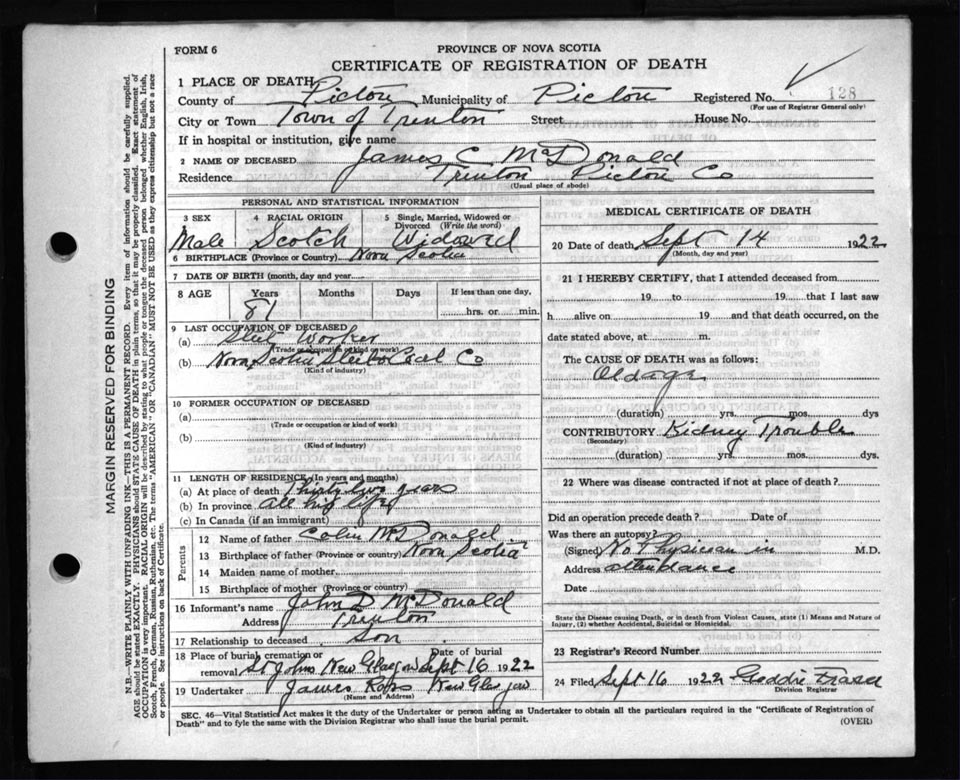 FORM 6
PROVINCE OF NOVA SCOTIA
CERTIFICATE OF REGISTRATION OF DEATH
128
1 PLACE OF DEATH
County of Pictou Municipality of Pictou Registered No.
(For use of Registrar General only)
City or Town Town of Trenton Street House No.
If in hospital or institution, give name
2 NAME OF DECEASED James C McDonald
Residence Trenton Pictou Co
(Usual place of abode)
PERSONAL AND STATISTICAL INFORMATION
3 SEX 4 RACIAL ORIGIN 5 Single, Married, Widowed or Divorced (Write the word)
Male Scotch Widowed
6 BIRTHPLACE (Province or Country) Nova Scotia
7 DATE OF BIRTH (month, day and year)
8 AGE Years Months Days If less than one day,
81 hrs. or min.
9 LAST OCCUPATION OF DECEASED
(a) Steel Worker
(Trade or occupation or kind of work)
(b) Nova Scotia Steel & Coal Co
(Kind of industry)
10 FORMER OCCUPATION OF DECEASED
(a)
(Trade or occupation or kind of work)
(b)
(Kind of industry)
11 LENGTH OF RESIDENCE (In years and months)
(a) At place of death Thirty two years
(b) In province all his life
(c) In Canada (if an immigrant)
Parents
12 Name of father Colin McDonald
13 Birthplace of father (Province or country) Nova Scotia
14 Maiden name of mother
15 Birthplace of mother (Province or country)
16 Informant's name John D McDonald
Address Trenton
17 Relationship to deceased Son
18 Place of burial, cremation or removal Date of burial
St Johns New Glasgow Sept 16 1922
19 Undertaker James Ross New Glasgow
(Name and Address)
MEDICAL CERTIFICATE OF DEATH
20 Date of death Sept 14 1922
(Month, day and year)
21 I HEREBY CERTIFY, that I attended deceased from
19 to 19 that I last saw
h alive on 19 and that death occurred, on the
date stated above, at m.
The CAUSE OF DEATH was as follows:
Old age
(duration) yrs. mos. dys
CONTRIBUTORY Kidney Trouble
(Secondary)
(duration) yrs. mos. dys.
22 Where was disease contracted if not at place of death?
Did an operation precede death? Date of
Was there an autopsy?
(Signed) No Physician in M.D.
Address attendance
Date
State the Disease causing Death, or in death from Violent Causes, state (1) Means and Nature of
Injury, (2) whether Accidental, Suicidal or Homicidal.
23 Registrar's Record Number
24 Filed Sept 16 1922 Fraser
Division Registrar
SEC. 46—Vital Statistics Act makes it the duty of the Undertaker or person acting as Undertaker to obtain all the particulars required in the "Certificate of Registration of
Death" and to fyle the same with the Division Registrar who shall issue the burial permit.
(OVER)
MARGIN RESERVED FOR BINDING
N.B.—WRITE PLAINLY WITH UNFADING INK—THIS IS A PERMANENT RECORD. Every item of information should be carefully supplied.
AGE should be stated EXACTLY. PHYSICIANS should STATE CAUSE OF DEATH in plain terms, so that it may be properly classified. Exact statement of
OCCUPATION is very important. RACIAL ORIGIN will be described by stating to what people or tongue the deceased person belonged whether English, Irish,
Scotch, French, German, Russian, Ruthenian, etc. The terms "AMERICAN" or "CANADIAN" MUST NOT BE USED as they express citizenship but not a race
or people. See instructions on back of Certificate.